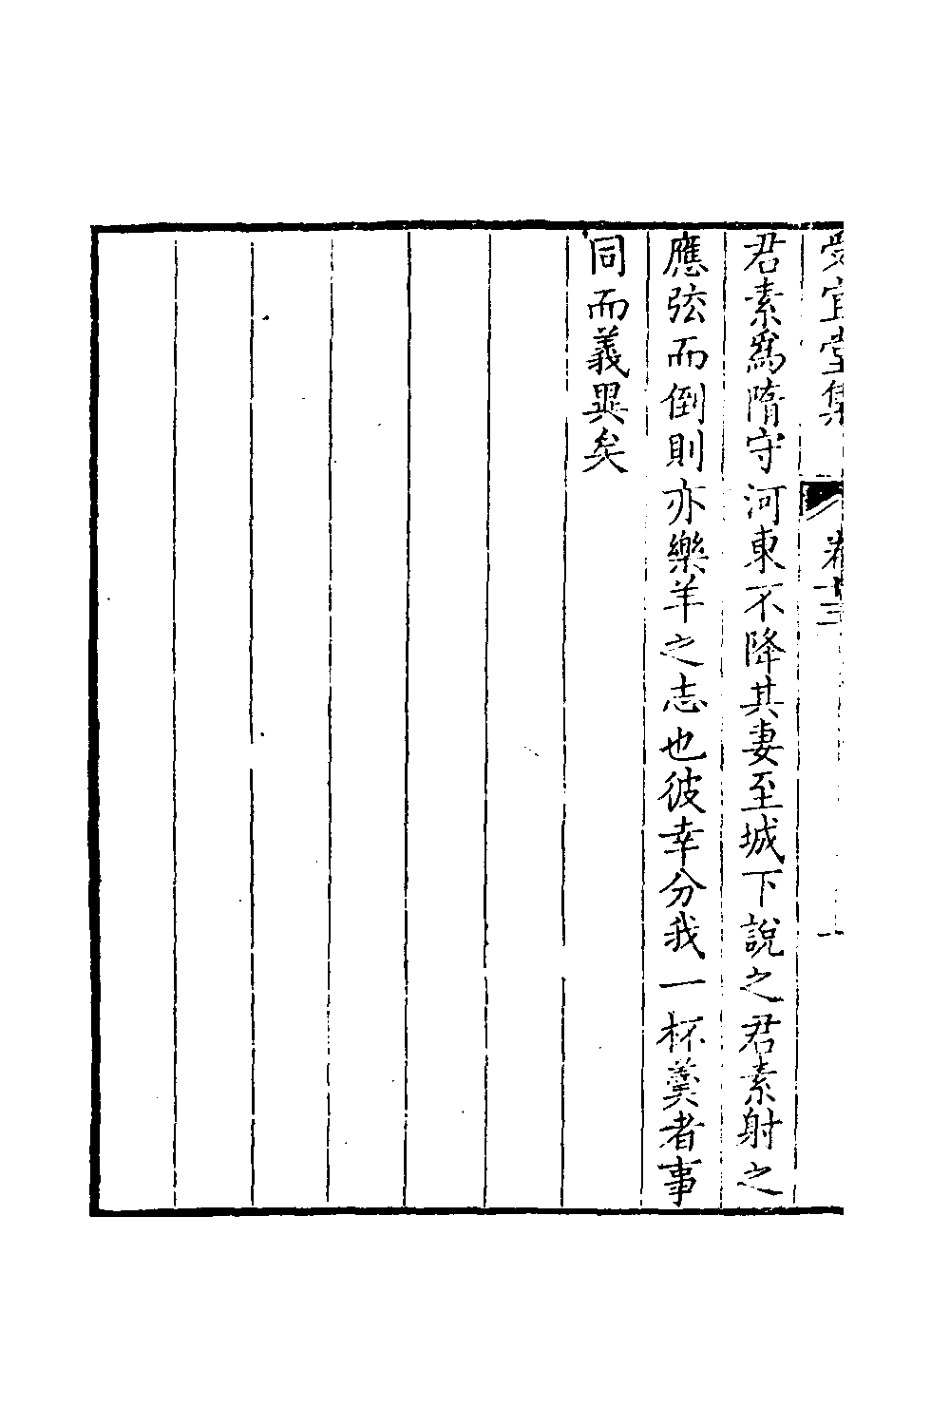 受宜堂集 卷十三 一
君素爲隋守河東不降其妻至城下說之君素射之
應弦而倒則亦樂羊之志也彼幸分我一杯羹者事
同而義異矣